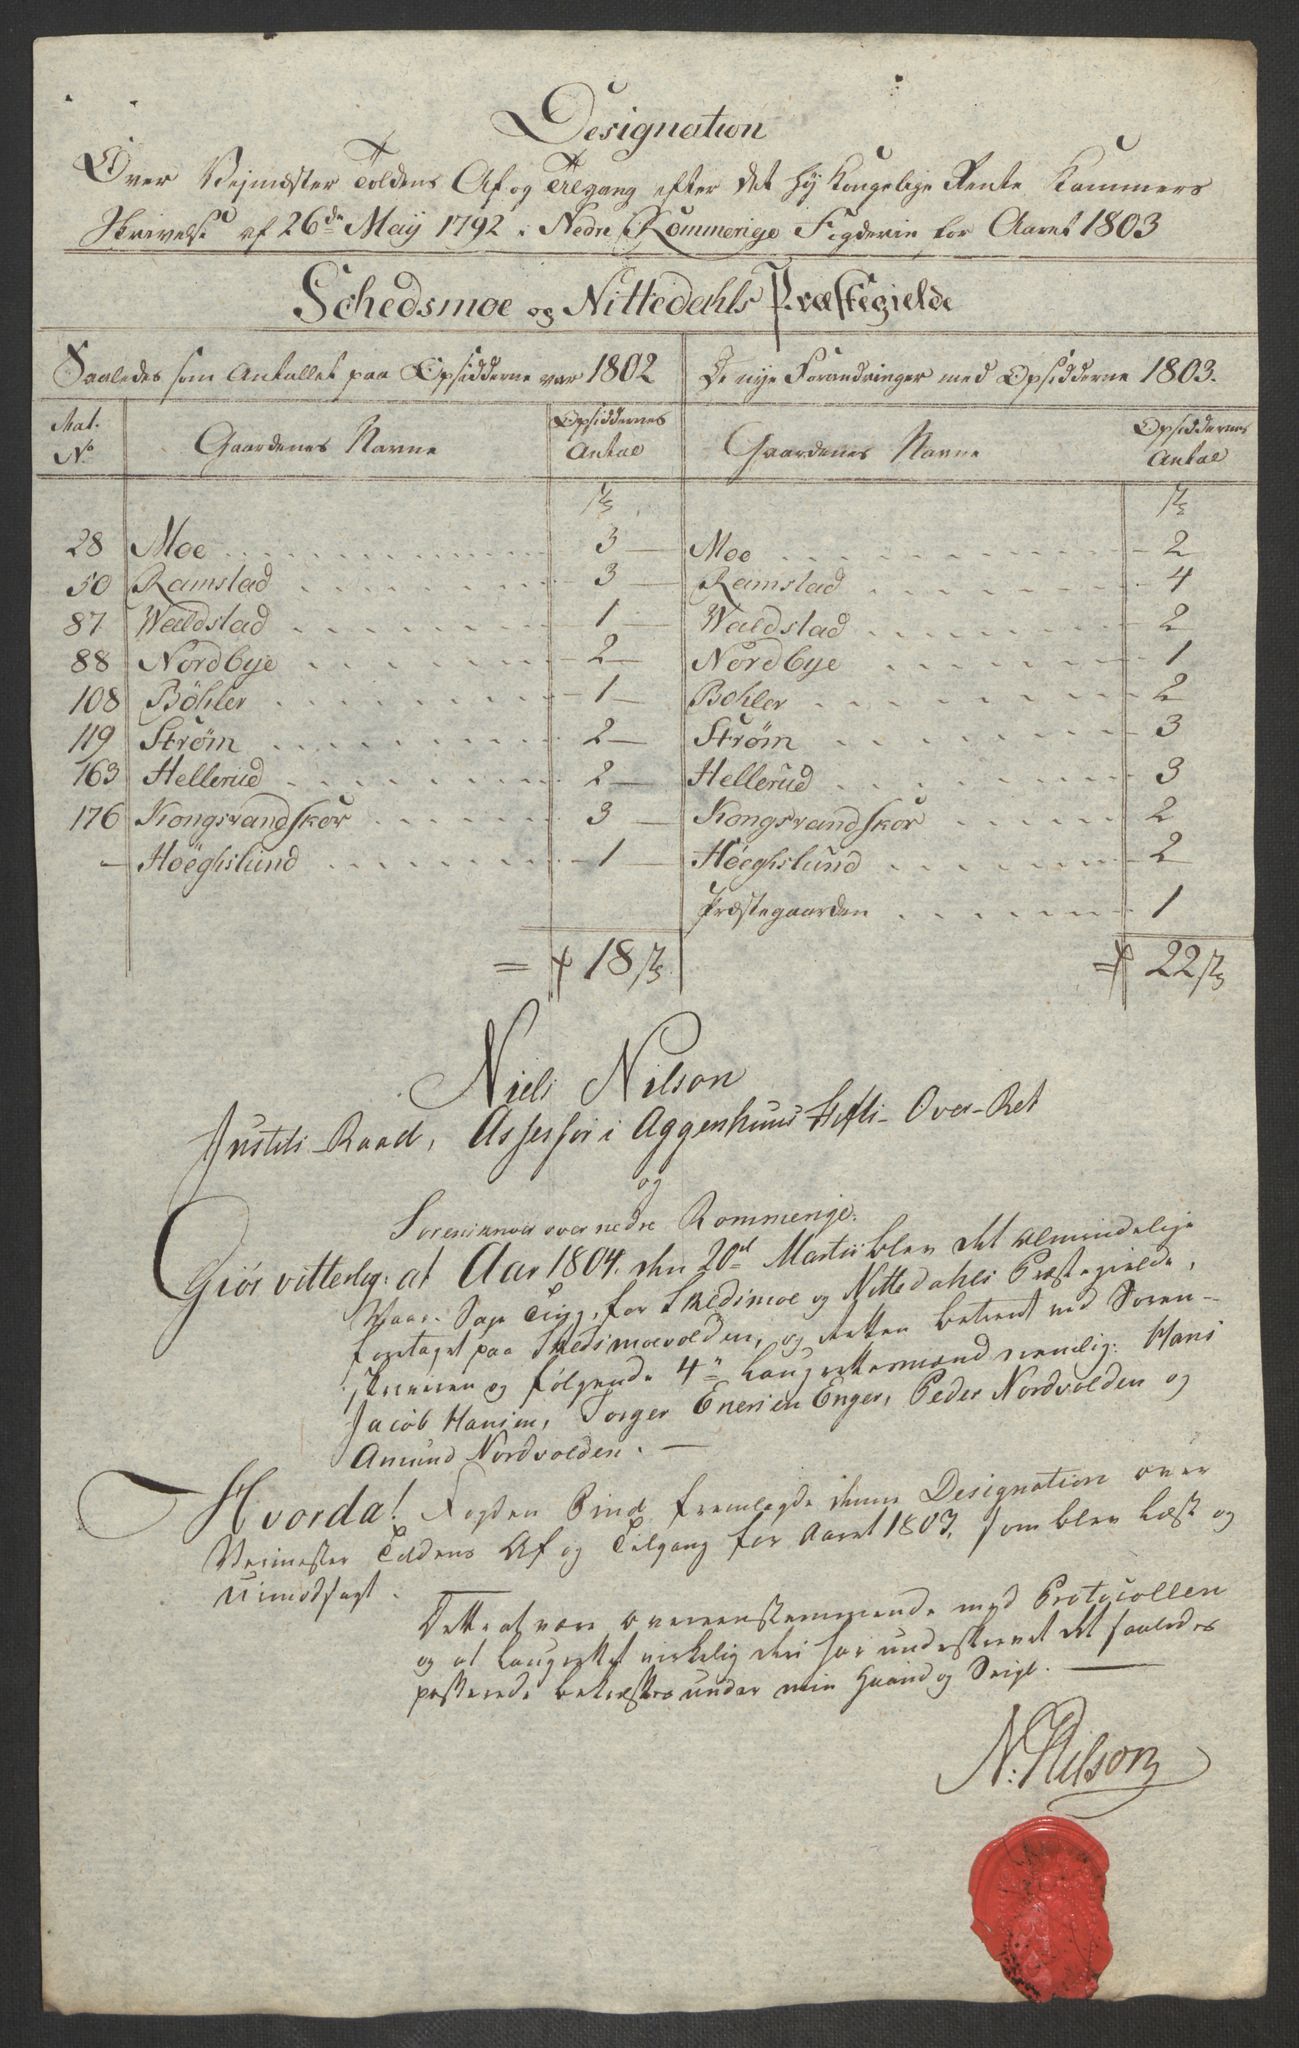 Designation
Over Vejmester Toldens Af og Tilgang efter det høy Kongelige Rente Kammers
Skrivelse af 26de May 1792 i Nedre Rommerige Fogderie for Aaret 1803
Schedsmoe og Nittedahls Præstegielde
Saaledes som Antallet paa Opsidderne var 1802 De nye Forandringer med Opsidderne 1803.
Mat. No Gaardenes Navne Opsiddernes Antal Gaardenes Navne Opsiddernes Antal
28 Moe 3 Moe 2
50 Ramstad 3 Ramstad 4
87 Waldstad 1 Waldstad 2
88 Nordbye 2 Nordbye 1
108 Böhler 1 Bohler 2
119 Strøm 2 Strøm 3
163 Hellerud 2 Hellerud 3
176 Kongsrandskor 3 Kongsrandskor 2
– Høeghslund 1 Høeghslund 2
Præstegaarden 1
= 18 = 22
Niels Nilson
Justits-Raad, Assessor i Aggershuus Stifts-Over-Ret
og
Sorenskriver over nedre Rommerige.
Giör vitterlig: at Aar 1804. den 20de Martii blev det almindelige
Vaar-Sage Ting, for Skedsmoe og Nittedahls Præstegielde,
foretaget paa Skedsmoevolden, og Retten betient ved Soren-
skriveren og følgende 4re Laugrettesmænd nemlig: Hans
Jacob Hansen, Torger Enersen Enger, Peder Nordvolden og
Amund Nordvolden. –
Hvorda! Fogden Bind fremlagde denne Designation over
Veimester Toldens Af og Tilgang for Aaret 1803, som blev læst og
uimodsagt.
Dette at være overeensstemmende med Protocollen
og at Laugrettet virkelig den har underskrevet det saaledes
passerede bekræftes under min Haand og Seigl.
N: Nilson